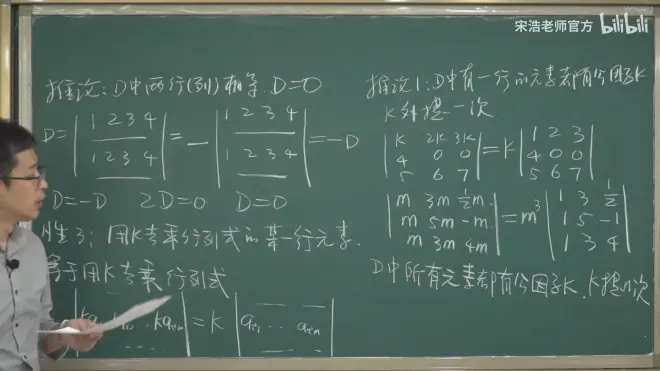 宋浩老师官方 bilibili
推论:D中两行(列)相等,D=0
D=| 1 2 3 4 / 1 2 3 4 |=-| 1 2 3 4 / 1 2 3 4 |=-D
D=-D 2D=0 D=0
性3:用K去乘行列式的某一行元素.
等于用K去乘行列式
=K | ai1 … ain |
推论1:D中有一行的元素都有公因子K
K外提一次
| K 2K 3K |   | 1 2 3 |
| 4 0 0 |=K| 4 0 0 |
| 5 6 7 |   | 5 6 7 |
| m 3m ½m |   | 1 3 ½ |
| m 5m -m |=m³| 1 5 -1 |
| m 3m 4m |   | 1 3 4 |
D中所有元素都有公因子K,K提n次